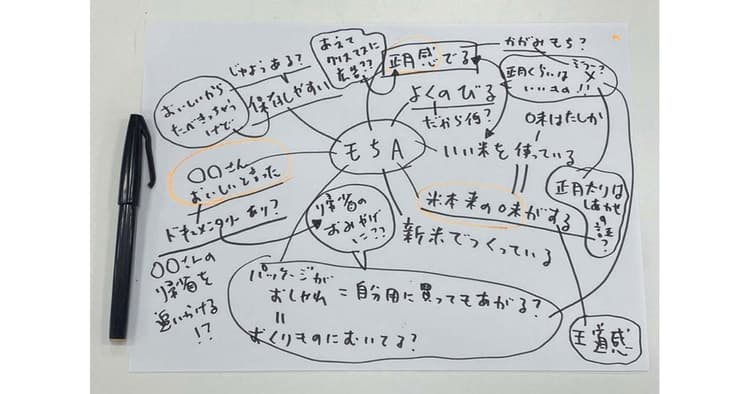 あえて
クリスマスに
広告??
正月感でる
かがみもち?
正月くらいは
いいもの!!
じゅようある?
おいしいから
たべきっちゃう
けど
保存しやすい
よくのびる
だから何?
味はたしか
もちA
いい米を使っている
〇〇さん
おいしいと言った
ドキュメンタリーあり?
帰省の
おみやげ
に??
米本来の味がする
新米でつくっている
正月太りは
しあわせ
の証?
〇〇さんの
帰省を
追いかける
!?
パッケージが
おしゃれ = 自分用に買ってもあがる?
=
おくりものにむいてる?
王道感